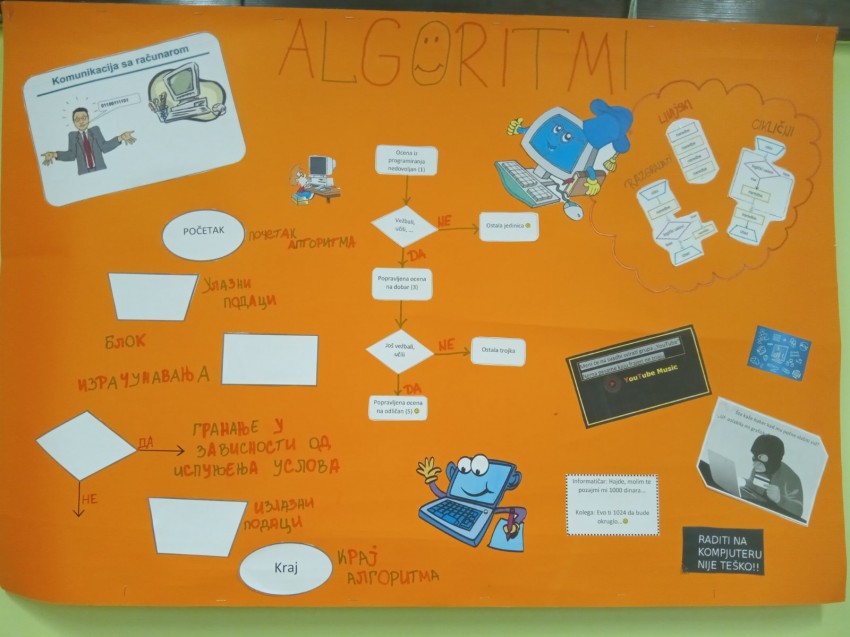 ALGORITMI
Komunikacija sa računarom
01100111101
Ocena iz
programiranja
nedovoljan (1)
Vežbali,
učili, ...
НЕ
Ostala jedinica
ДА
Popravljena ocena
na dobar (3)
Još vežbali,
učili
НЕ
Ostala trojka
ДА
Popravljena ocena
na odličan (5)
POČETAK
ПОЧЕТАК
АЛГОРИТМА
УЛАЗНИ
ПОДАЦИ
БЛОК
ИЗРАЧУНАВАЊА
ДА
НЕ
ГРАНАЊЕ У
ЗАВИСНОСТИ ОД
ИСПУЊЕЊА УСЛОВА
ИЗЛАЗНИ
ПОДАЦИ
Kraj
КРАЈ
АЛГОРИТМА
YouTube Music
Informatičar: Hajde, molim te
pozajmi mi 1000 dinara...
Kolega: Evo ti 1024 da bude
okruglo...
RADITI NA
KOMPJUTERU
NIJE TEŠKO!!